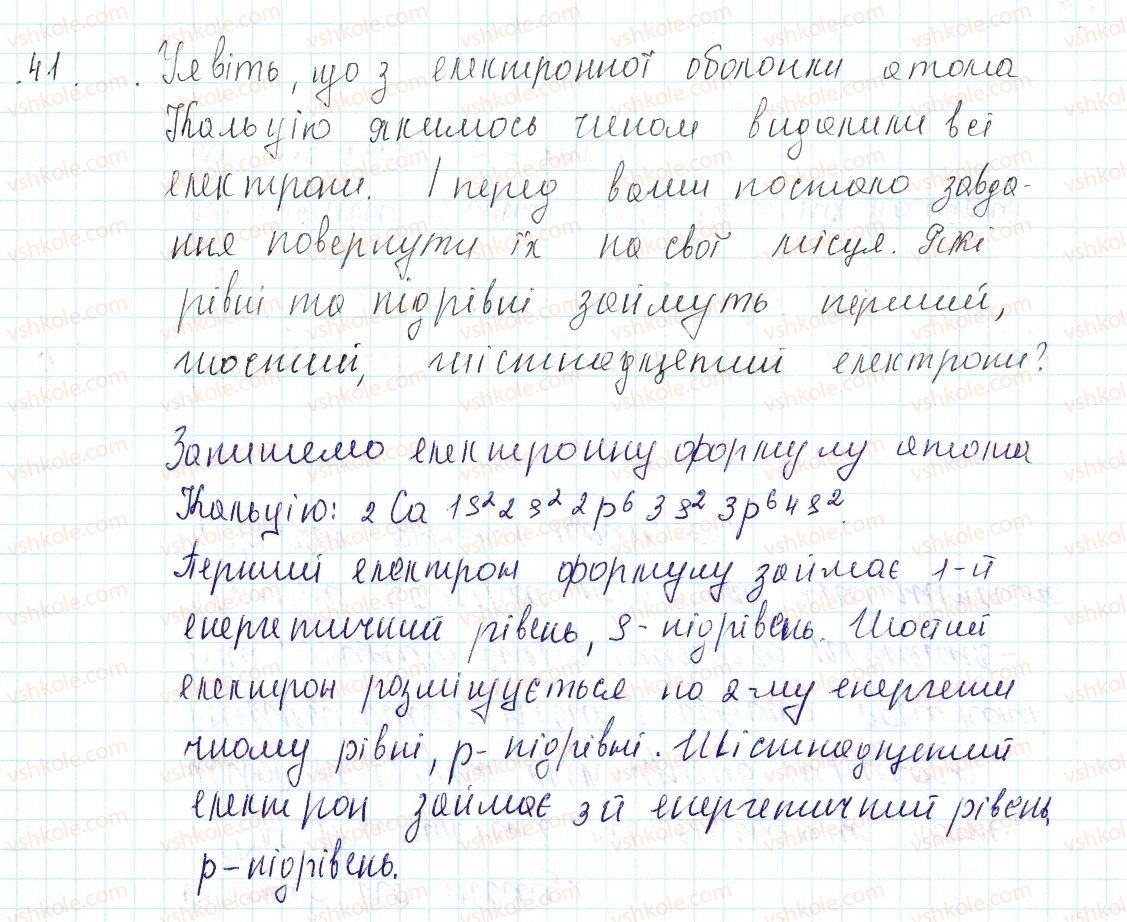 41. Уявіть, що з електронної оболонки атома
Кальцію якимось чином видалили всі
електрони. І перед вами постало завда-
ння повернути їх на свої місця. Які
рівні та підрівні займуть перший,
шостий, шістнадцятий електрони?
Запишемо електронну формулу атома
Кальцію: 2 Ca 1s² 2s² 2p⁶ 3s² 3p⁶ 4s².
Перший електрон формулу займає 1-й
енергетичний рівень, s-підрівень. Шостий
електрон розміщується на 2-му енергети
чному рівні, p-підрівні. Шістнадцятий
електрон займає 3й енергетичний рівень,
p-підрівень.